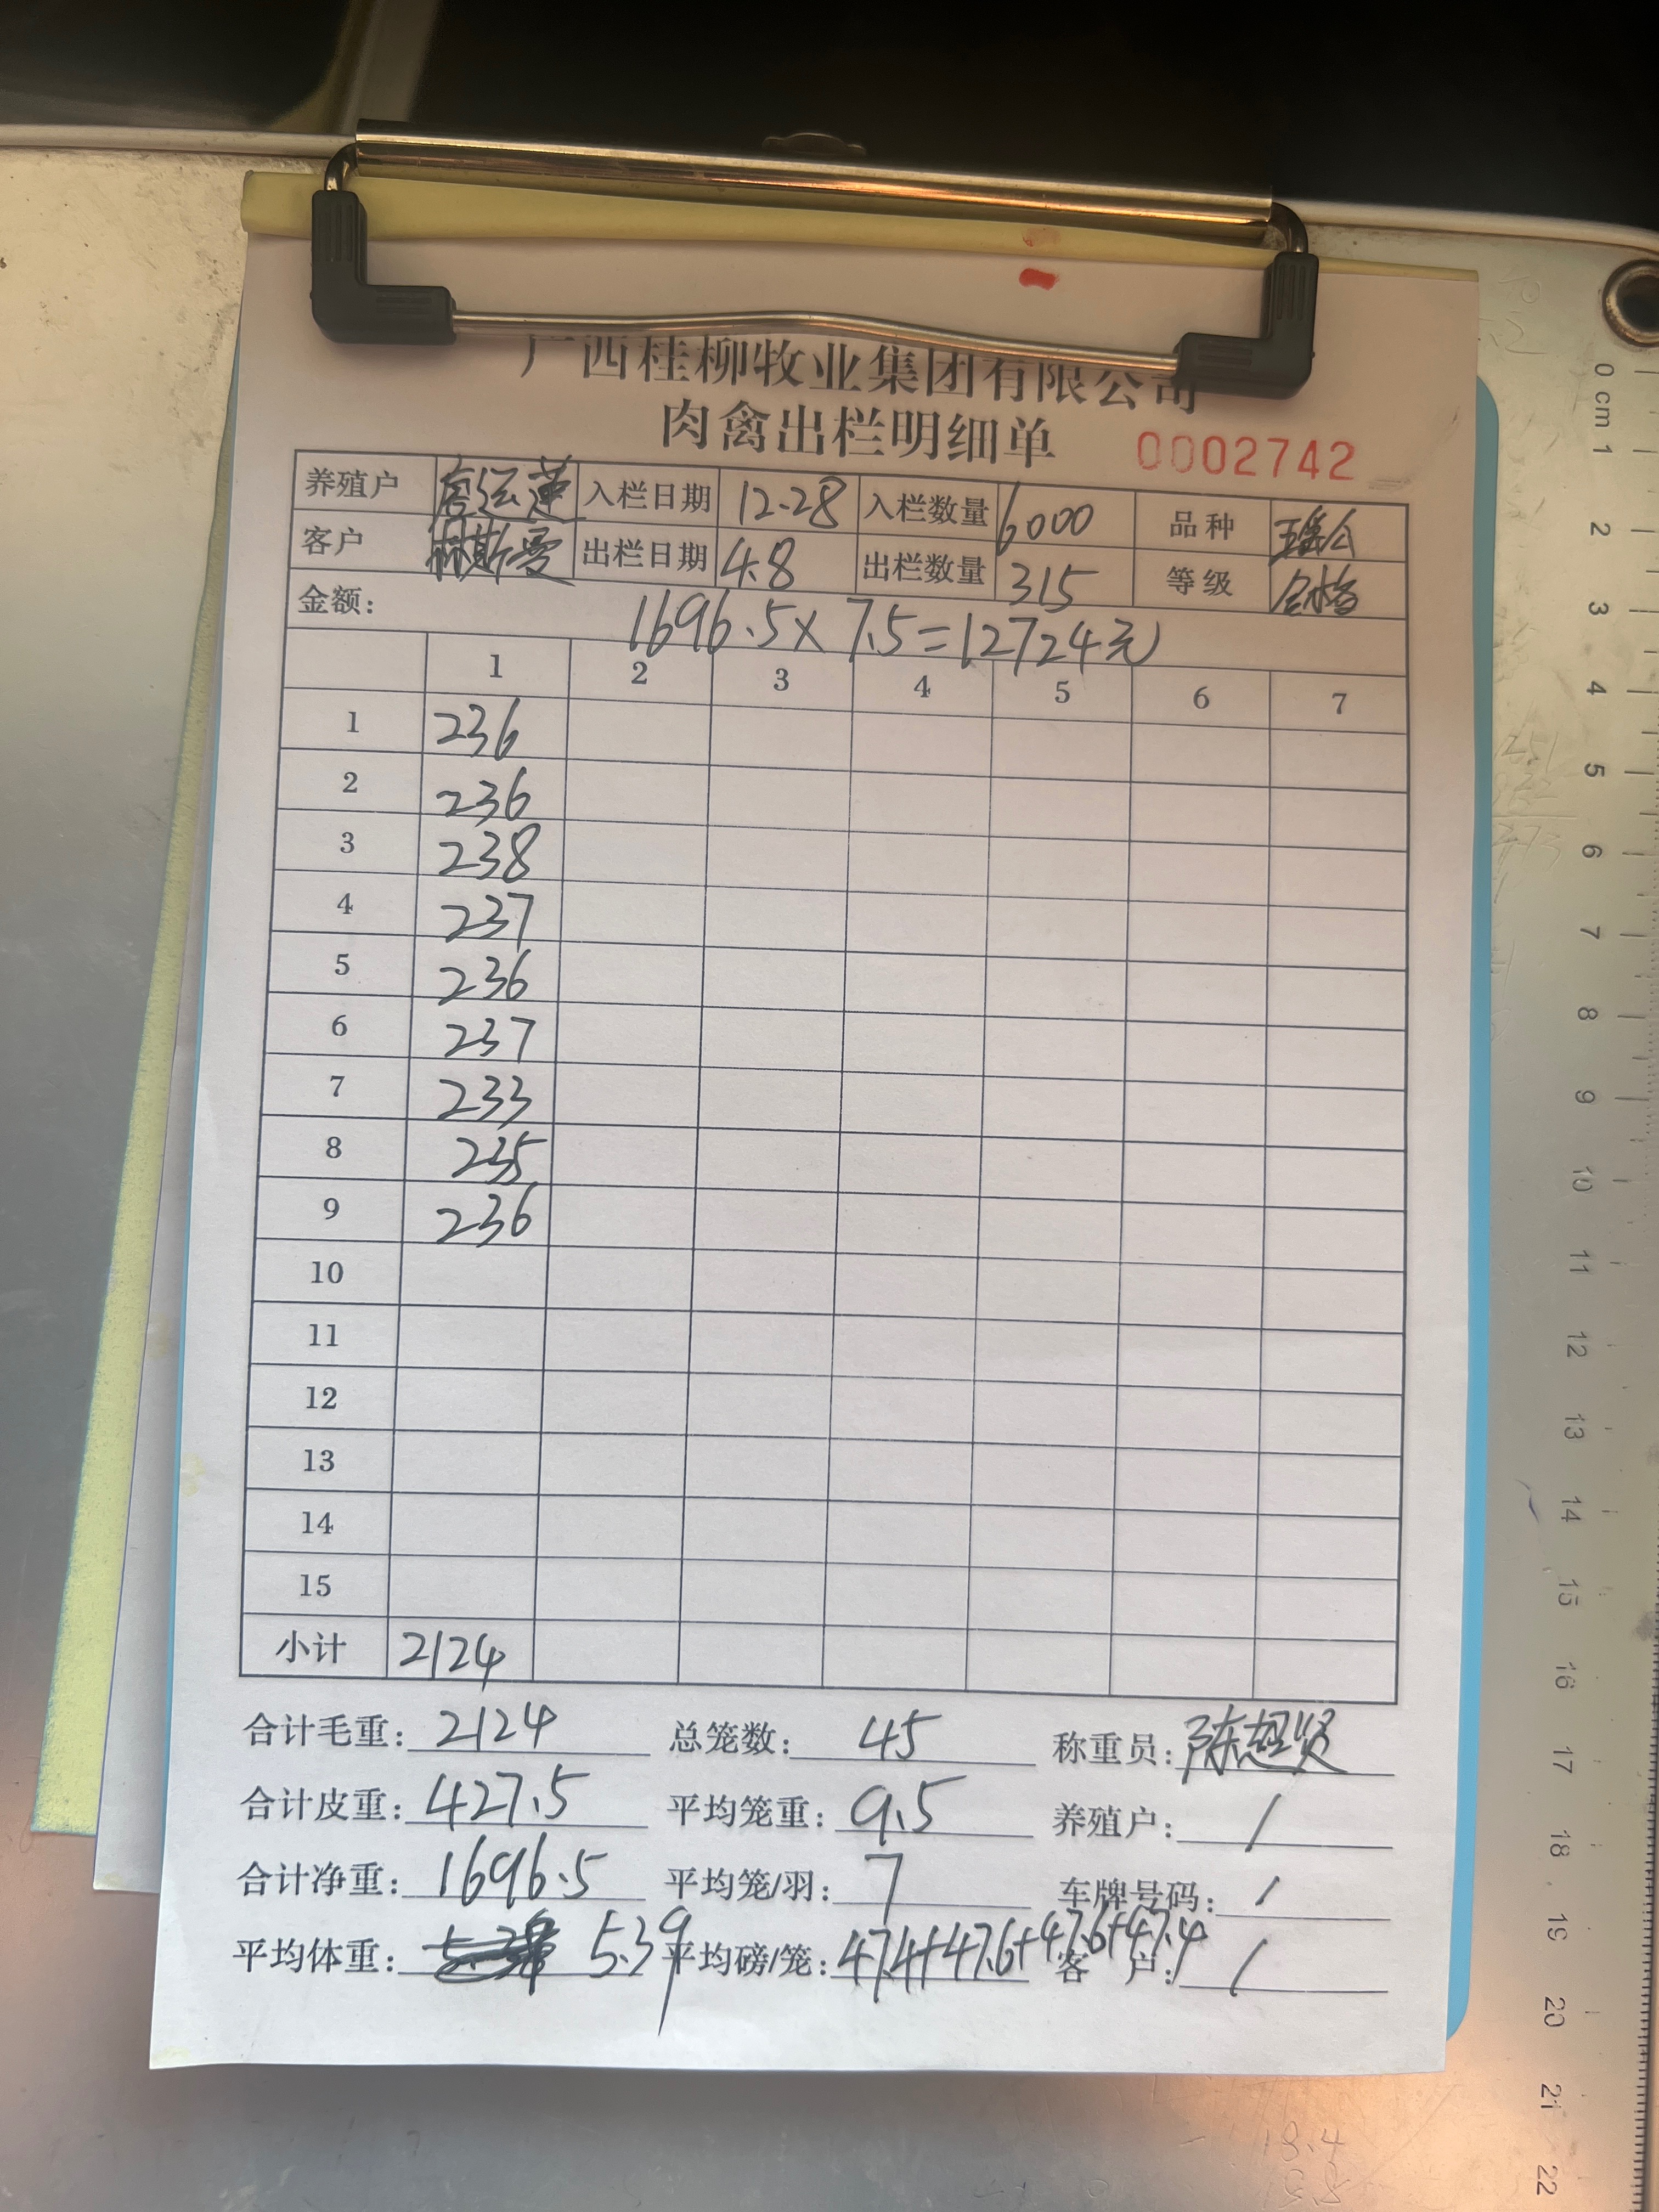 广西桂柳牧业集团有限公司
肉禽出栏明细单 0002742
养殖户 唐运莲 入栏日期 12.28 入栏数量 6000 品种
客户 林斯曼 出栏日期 4.8 出栏数量 315 等级 合格
金额: 1696.5×7.5=12724元
1 2 3 4 5 6 7
1 236
2 236
3 238
4 237
5 236
6 237
7 233
8 235
9 236
10
11
12
13
14
15
小计 2124
合计毛重: 2124 总笼数: 45 称重员: 陈超贤
合计皮重: 427.5 平均笼重: 9.5 养殖户: /
合计净重: 1696.5 平均笼/羽: 7 车牌号码: /
平均体重: 5.39 平均磅/笼: 47.4+47.6+47.6+47.4 客户: /
0 cm 1 2 3 4 5 6 7 8 9 10 11 12 13 14 15 16 17 18 19 20 21 22
18.4